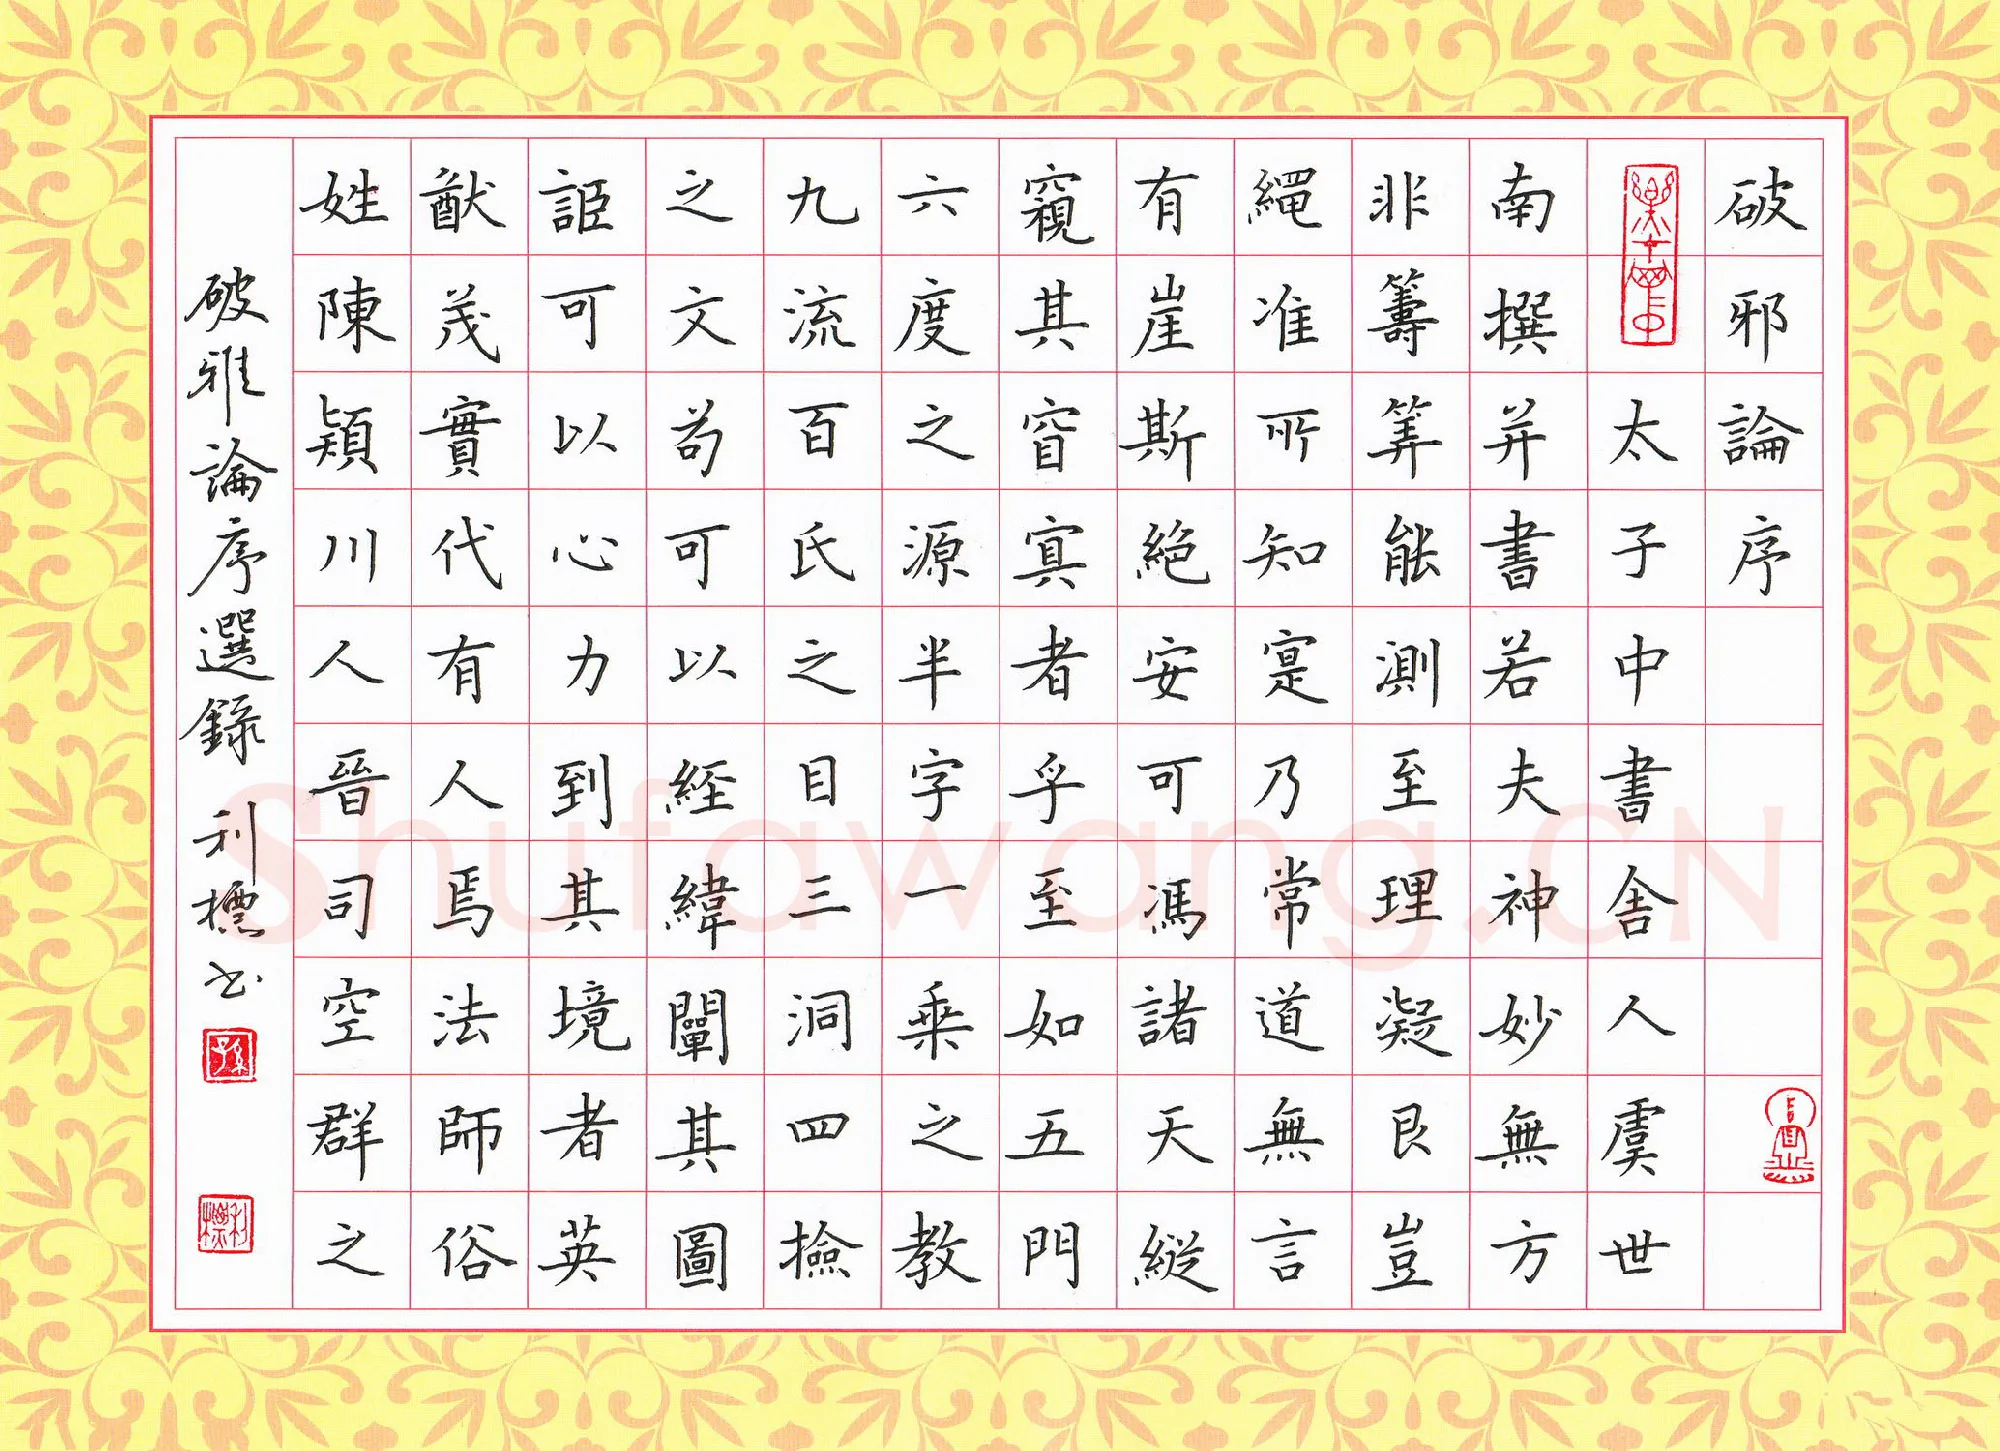 破邪論序
太子中書舍人虞世
南撰并書若夫神妙無方
非籌筭能測至理凝邈豈
繩准所知寔乃常道無言
有崖斯絕安可馮諸天縱
窺其窅寘者乎至如五門
六度之源半字一乘之教
九流百氏之目三洞四撿
之文苟可以經緯闡其圖
詎可以心力到其境者英
猷茂實代有人焉法師俗
姓陳潁川人晉司空群之
破雅論序選錄 利標书
Shufawang.CN